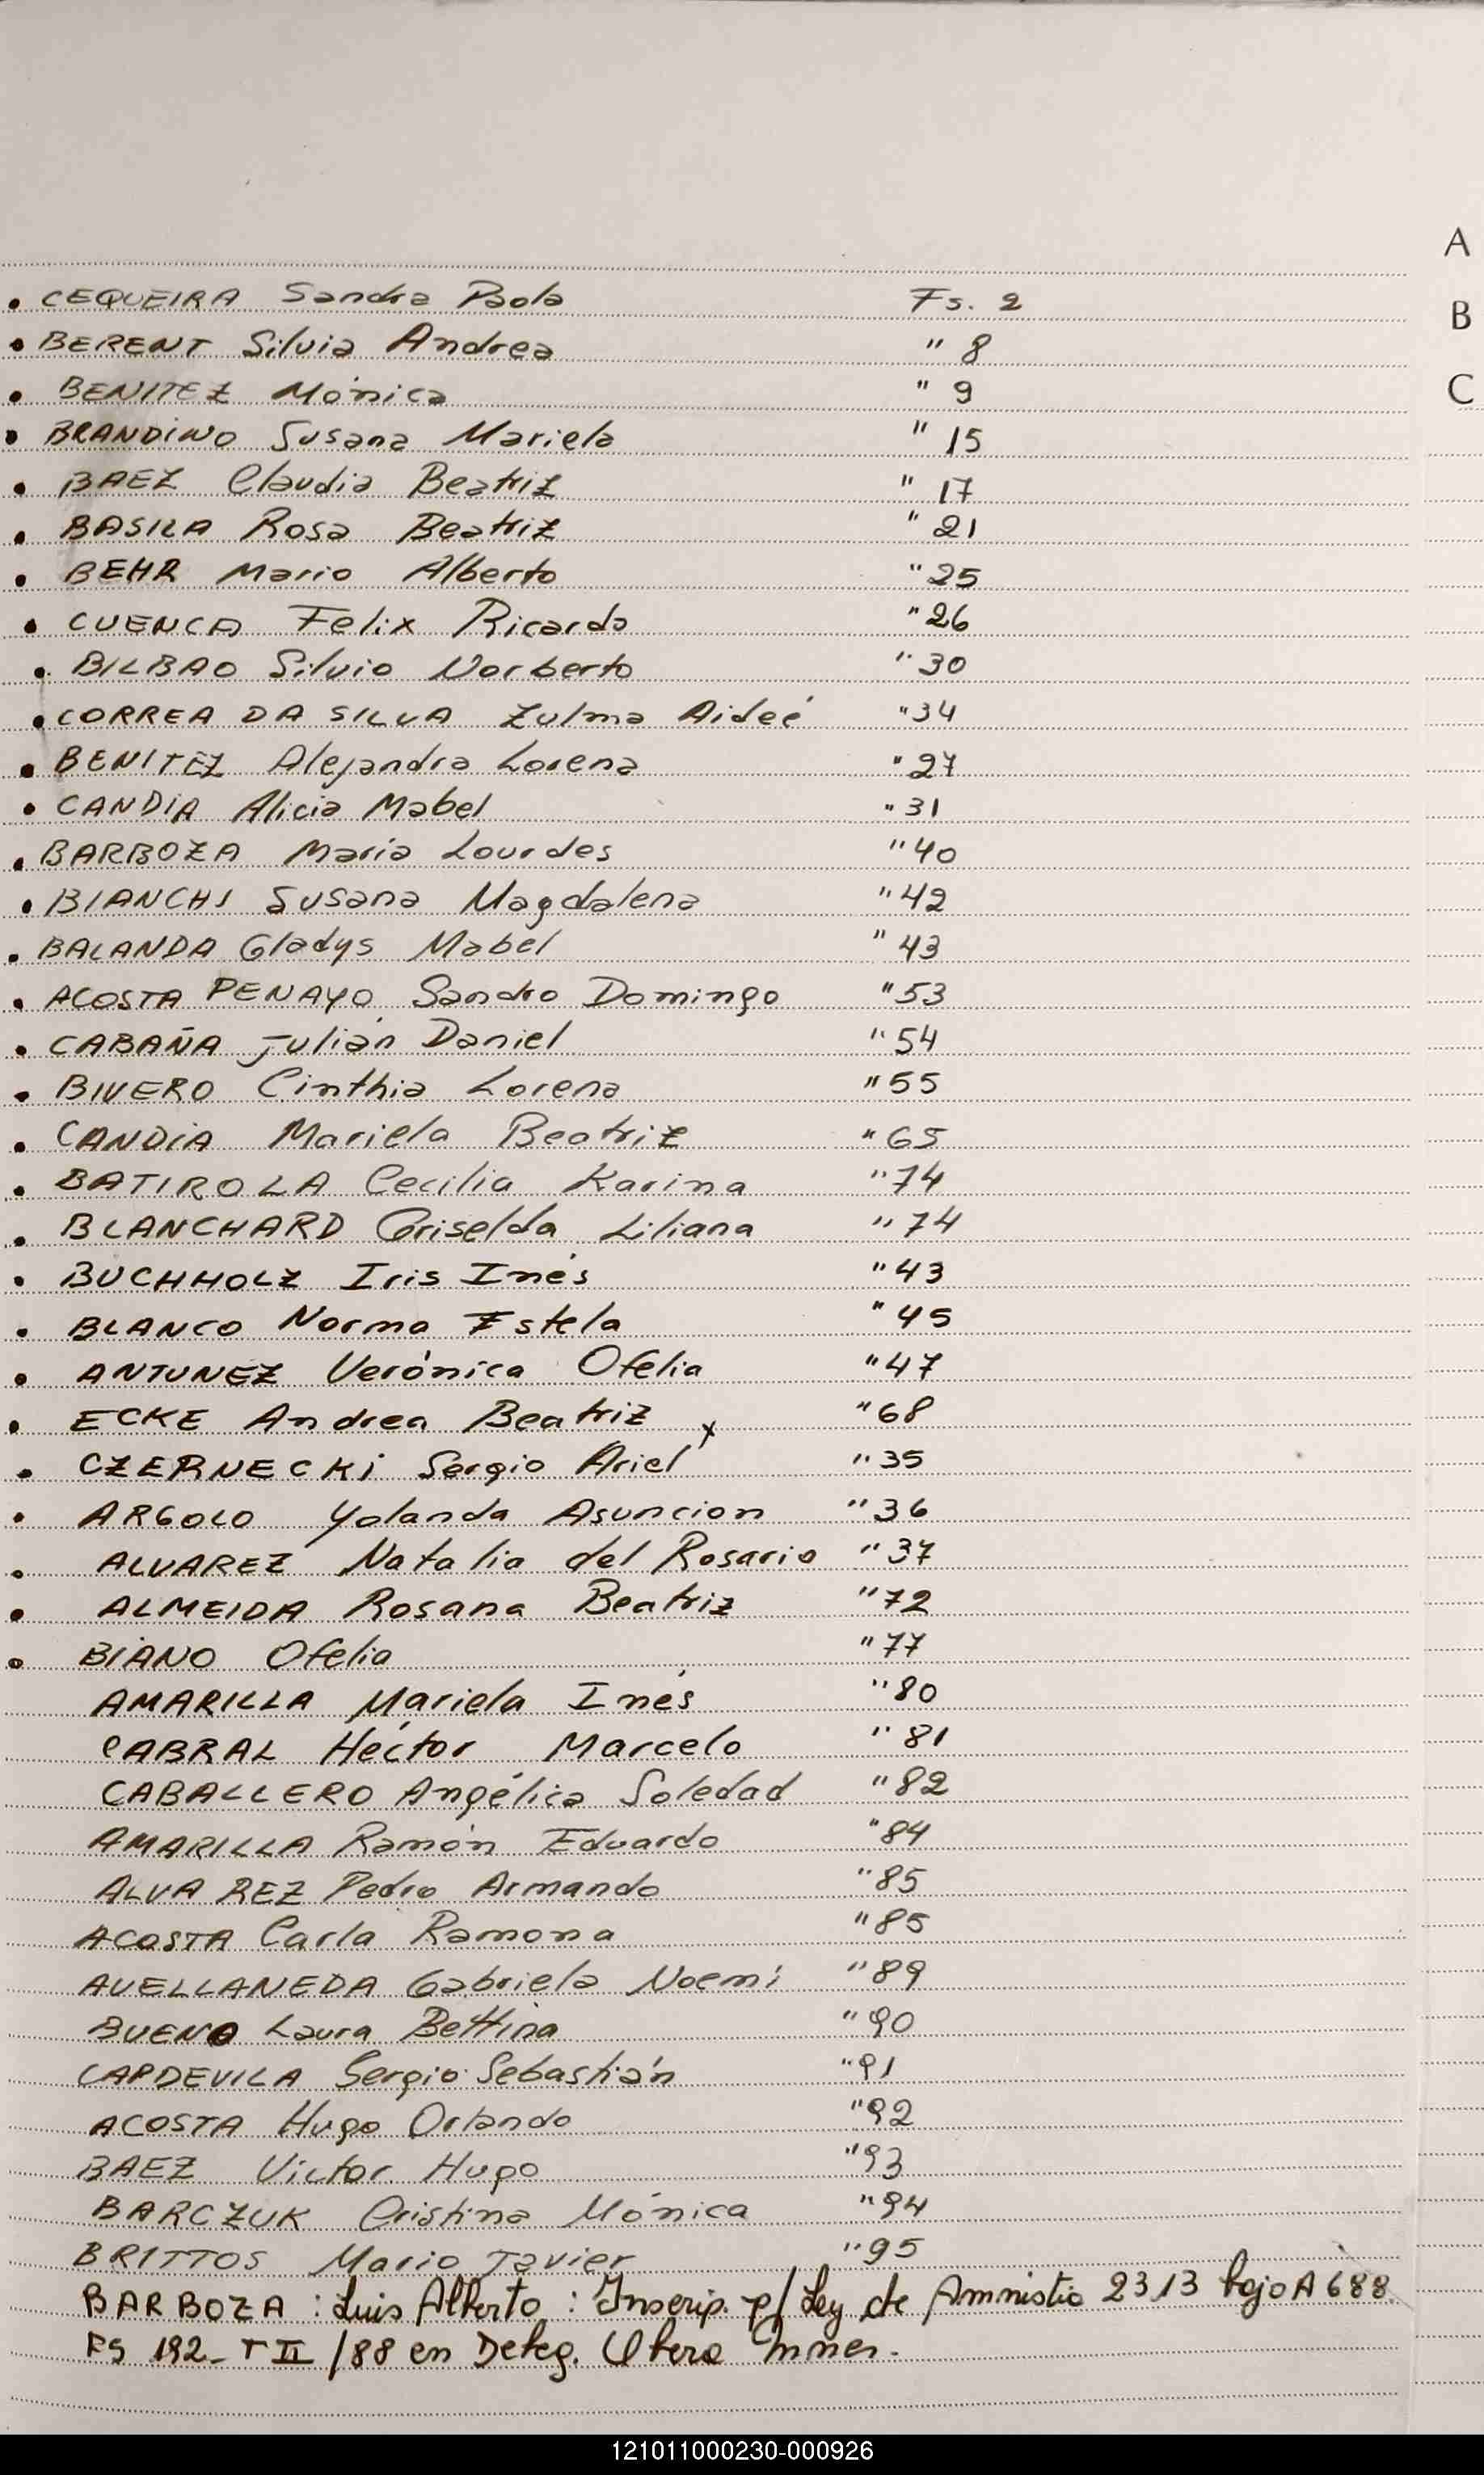 A
B
C
• CEQUEIRA Sandra Paola Fs. 2
• BERENT Silvia Andrea " 8
• BENITEZ Mónica " 9
• BRANDINO Susana Mariela " 15
• BAEZ Claudia Beatriz " 17
• BASILA Rosa Beatriz " 21
• BEHR Mario Alberto " 25
• CUENCA Felix Ricardo " 26
• BILBAO Silvio Norberto " 30
• CORREA DA SILVA Zulma Aideé " 34
• BENITEZ Alejandra Lorena " 27
• CANDIA Alicia Mabel " 31
• BARBOZA María Lourdes " 40
• BIANCHI Susana Magdalena " 42
• BALANDA Gladys Mabel " 43
• ACOSTA PENAYO Sandro Domingo " 53
• CABAÑA Julián Daniel " 54
• BIVERO Cinthia Lorena " 55
• CANDIA Mariela Beatriz " 65
• BATIROLA Cecilia Karina " 74
• BLANCHARD Griselda Liliana " 74
• BUCHHOLZ Iris Inés " 43
• BLANCO Norma Estela " 45
• ANTUNEZ Verónica Ofelia " 47
• ECKE Andrea Beatriz " 68
• CZERNECKi Sergio Ariel x " 35
• ARGOLO Yolanda Asuncion " 36
• ALVAREZ Natalia del Rosario " 37
• ALMEIDA Rosana Beatriz " 72
• BIANO Ofelia " 77
AMARILLA Mariela Inés " 80
CABRAL Héctor Marcelo " 81
CABALLERO Angélica Soledad " 82
AMARILLA Ramón Eduardo " 84
ALVAREZ Pedro Armando " 85
ACOSTA Carla Ramona " 85
AVELLANEDA Gabriela Noemí " 89
BUENO Laura Bettina " 90
CAPDEVILA Sergio Sebastián " 91
ACOSTA Hugo Orlando " 92
BAEZ Victor Hugo " 93
BARCZUK Cristina Mónica " 94
BRITTOS Mario Javier " 95
BARBOZA : Luis Alberto : Inscrip. p/ Ley de Amnistia 2313 bajo A 688
FS 192 - T II / 88 en Deleg. Obera Mnes.
121011000230-000926